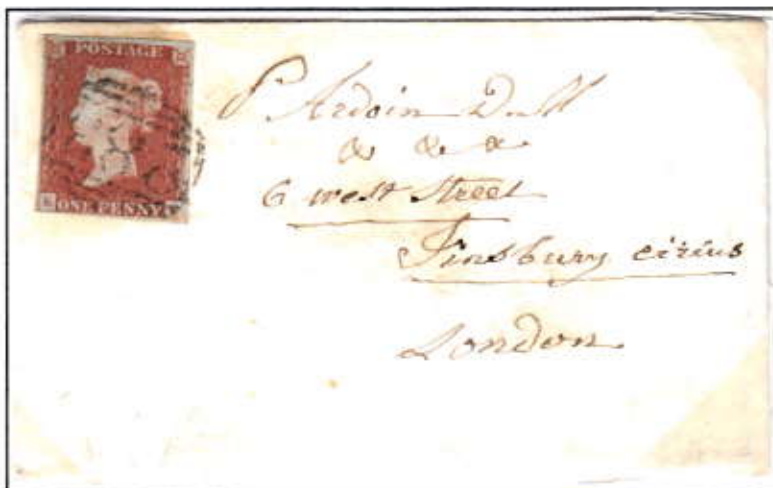 POSTAGE
ONE PENNY
P Ardoin
& & &
6 west street
Finsbury circus
London